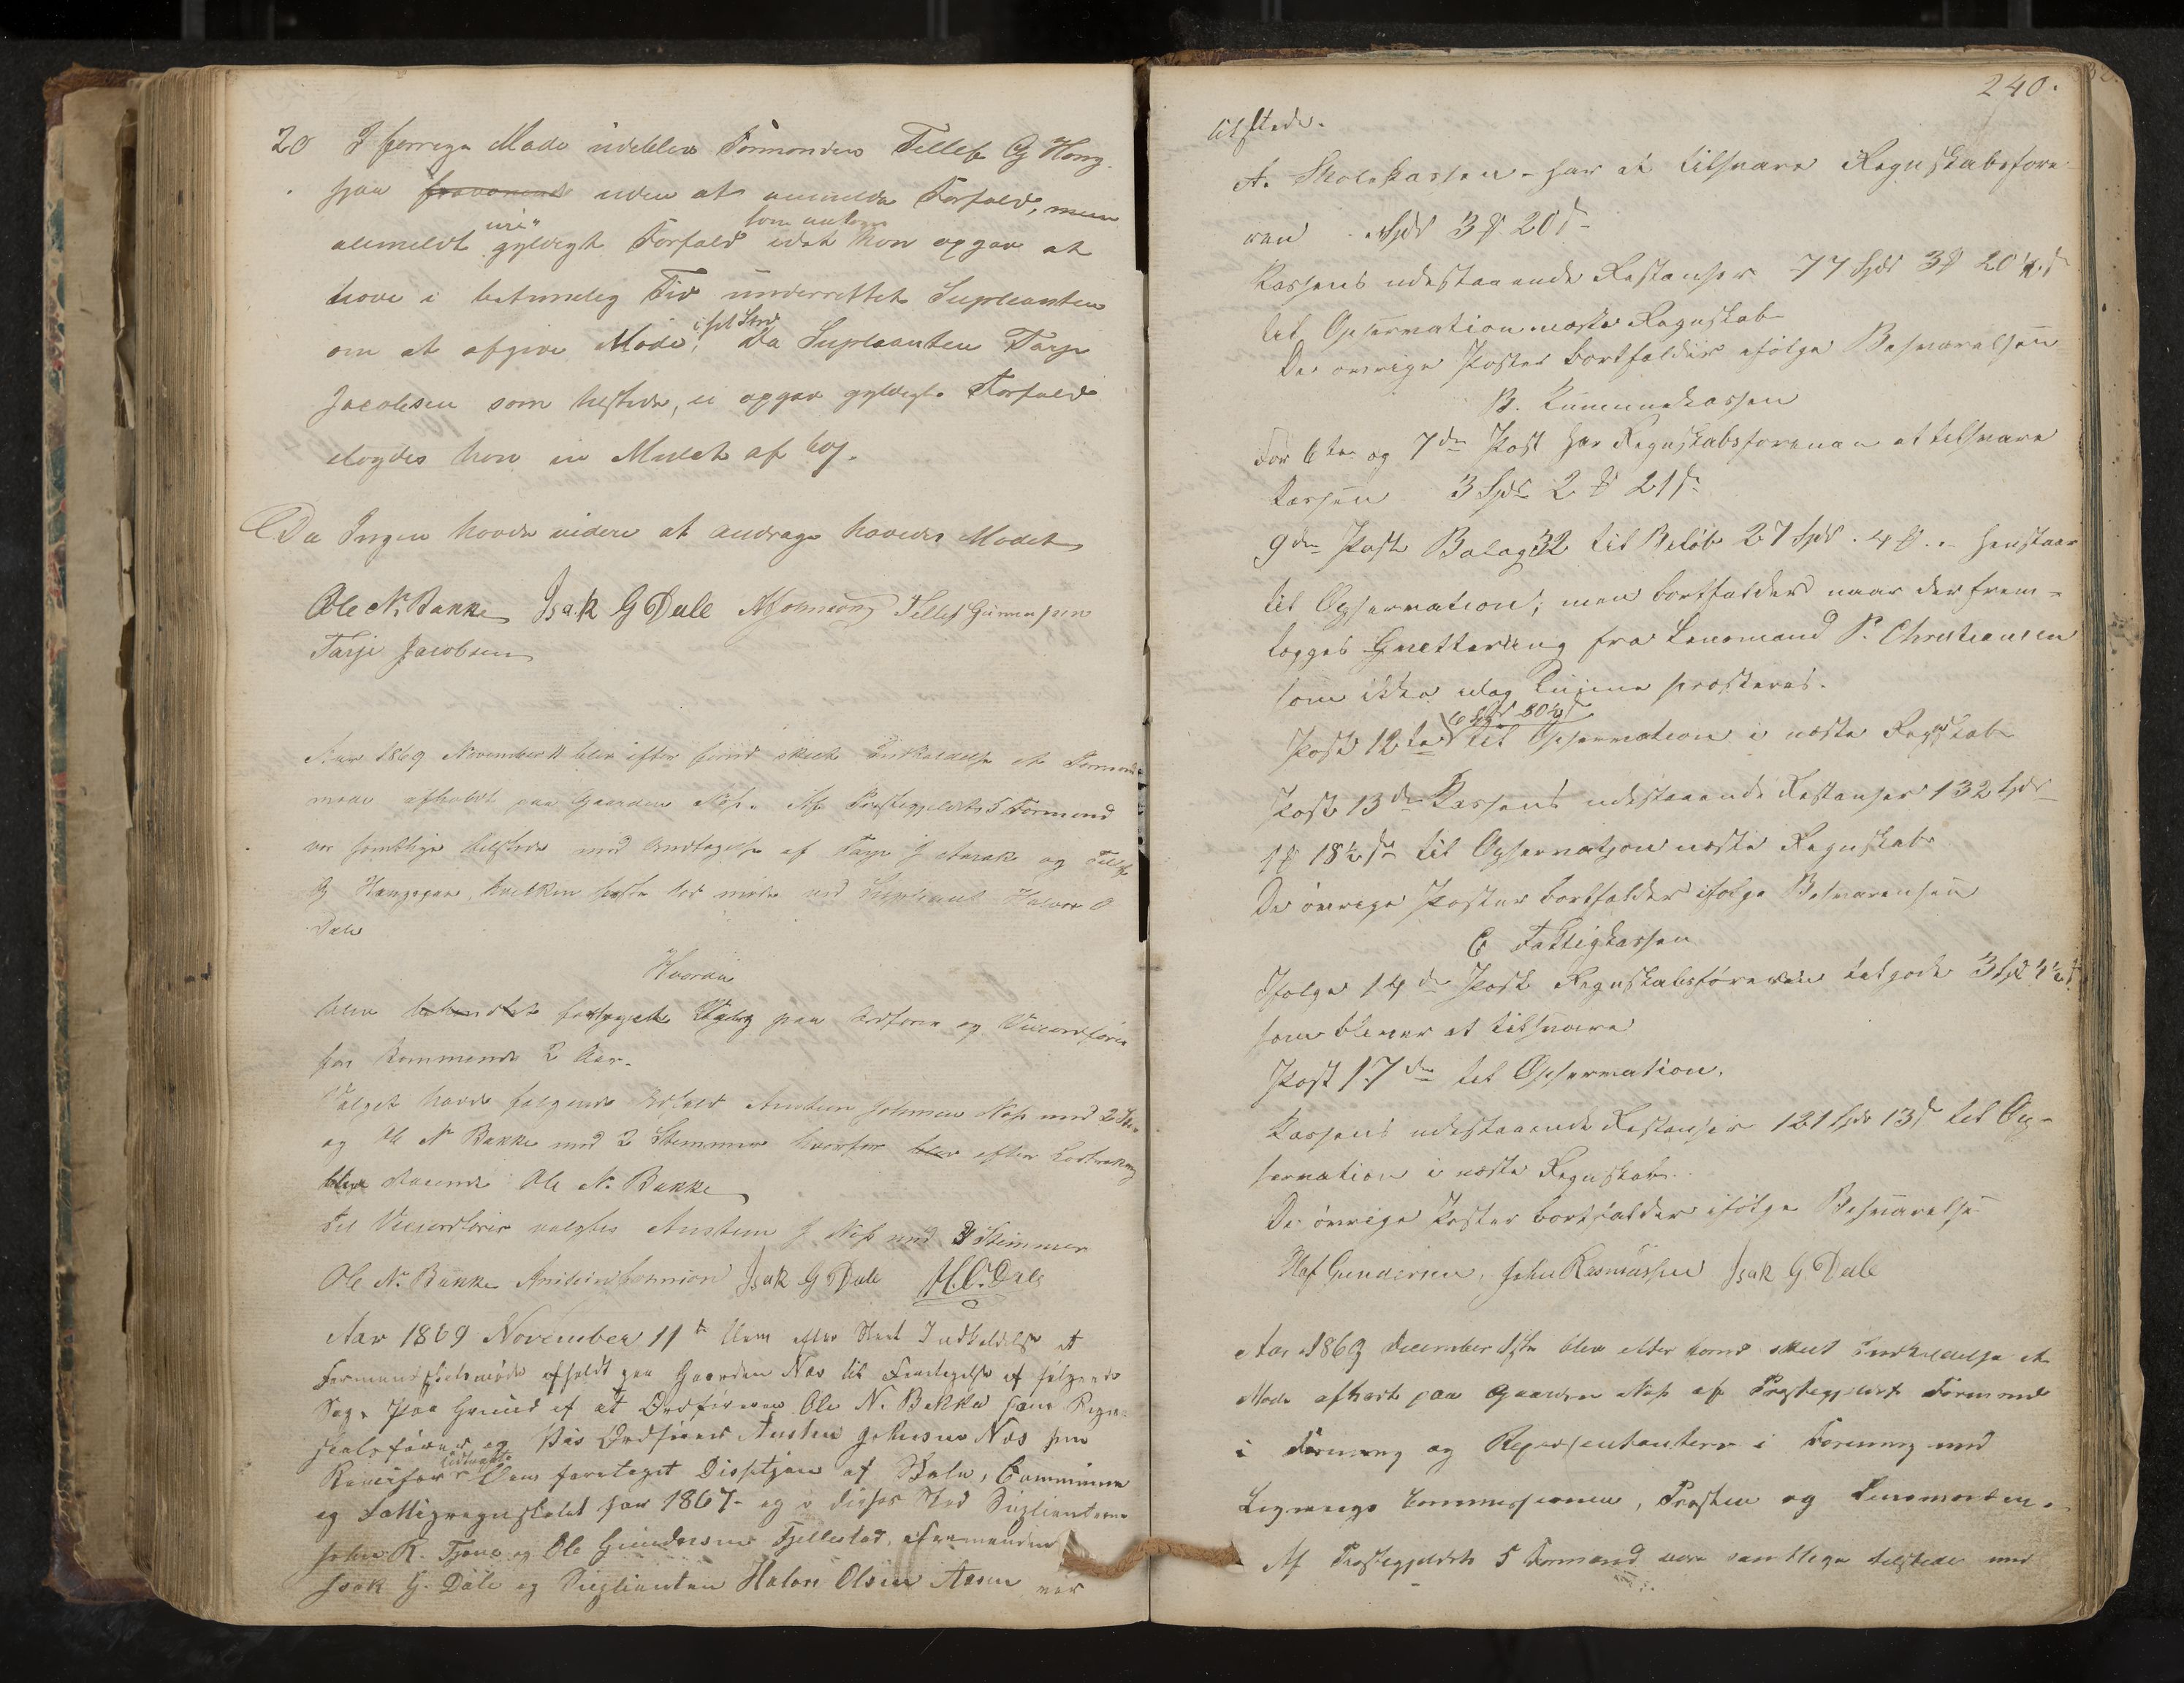 20 I forrige Møde udeblev Formanden Tellef G Hong
paa fraværend uden at anmelde Forfald, men
ui"
som anten
almeldt gyldigt Forfald idet han opgav at
have i betimelig Tid underrettet Supleanten
i sit Sted
om at afgive Møde, Da Supleanten Tarje
Jacobsen som tilstede, ei opgav gyldigt Forfald
ilagdes han en Mulct af 60 s.
Da Ingen havde videre at andrage hævedes Mødet
Ole N. Bakke Isak G Dale AJohnsen Tellef Gunnersen
Tarje Jacobsen
Aar 1869 November 11 blev efter forud skeet Indkaldelse et Formands
møde afholdt paa Gaarden Næs. Af Præstegjeldets 5 Formænd
var samtlige tilstede med Undtagelse af Tarje J Aarak og Tellef
G Hangegaa, hvilken sidste lod møde ved Supleant Halvor O
Dale
Hvorda
blev foretaget Valg paa Ordfører og Viceordfører
for kommende 2 Aar.
Valget havde følgende Udfald Austen Johnsen Næs med 2 St.
og Ole N Bakke med 2 Stemmer hvorfor blev efter Lodtrækning
blev staaende Ole N. Bakke
Til Viceordfører valgtes Austen J Næs med 3 Stemmer
Ole N. Bakke Isak G Dale H.O. Dale
Aar 1869 November 11te blev efter skeet Indkaldelse et
Formandskabsmøde afholdt paa Gaarden Næs til Foretagelse af følgende
Sag. Paa Grund af at Ordføreren Ole N. Bakke som Regn-
skabsfører og Vis Ordfører Austen Johnsen Næs som
Revisor blev foretaget Dissitjon af Skole, Commune
og Fattigregnskabet for 1867 - og i disses Sted Suplianterne
John R. Tjone og Ole Gundersen Fjellestad, Formanden
Isak G. Dale og Suplianten Halvor Olsen Aasen var
240.
tilstede.
A. Skolekassen - har at tilsvare Regnskabsføre
ren Spd 3 # 20 s -
Kassens udestaaende Restanser 77 Spd 3 # 20 ½ s
til Opservation næste Regnskab
De øvrige Poster bortfalder ifølge Besvarelsen
B. Kumunekassen
For 6te og 7de Post har Regnskabsføreren at tilsvare
Kassen 3 Spd 2 # 21 s
9de Post Balag 32 til Beløb 27 Spd . 4 # . - henstaar
til Opservation; men bortfalder naar der frem-
lægges Qvettering fra Lensmand P. Christiansen
som ikke idag kunne præsteres.
Post 12te til Opservation i næste Regnskab
Post 13de Kassens udestaaende Restanser 132 Spd
1 # 18 ½ s til Opservatjon næste Regnskab
De øvrige Poster bortfalder ifølge Besvarensen
C Fattigkassen
Ifølge 14de Post Regnskabsføreren tilgode 3 Spd 4 ½ s
som bliver at tilsvare
Post 17de til Opservation.
Kassens udestaaende Restanser 121 Spd 13 s til Op-
servation i næste Regnskab.
De øvrige Poster bortfalder ifølge Besvarelse
Olaf Gundersen, John Rasmussen Isak G. Dale
Aar 1869 December 1ste blev efter forud skeet Indkaldelse et
Møde afholdt paa Gaarden Næs af Præstegjeldets Formænd
i Forening og Repræsentantern i Forening med
Lignings Commissionen, Præsten og Lensmanden.
Af Præstegjeldets 5 Formænd vare samtlige tilstede med